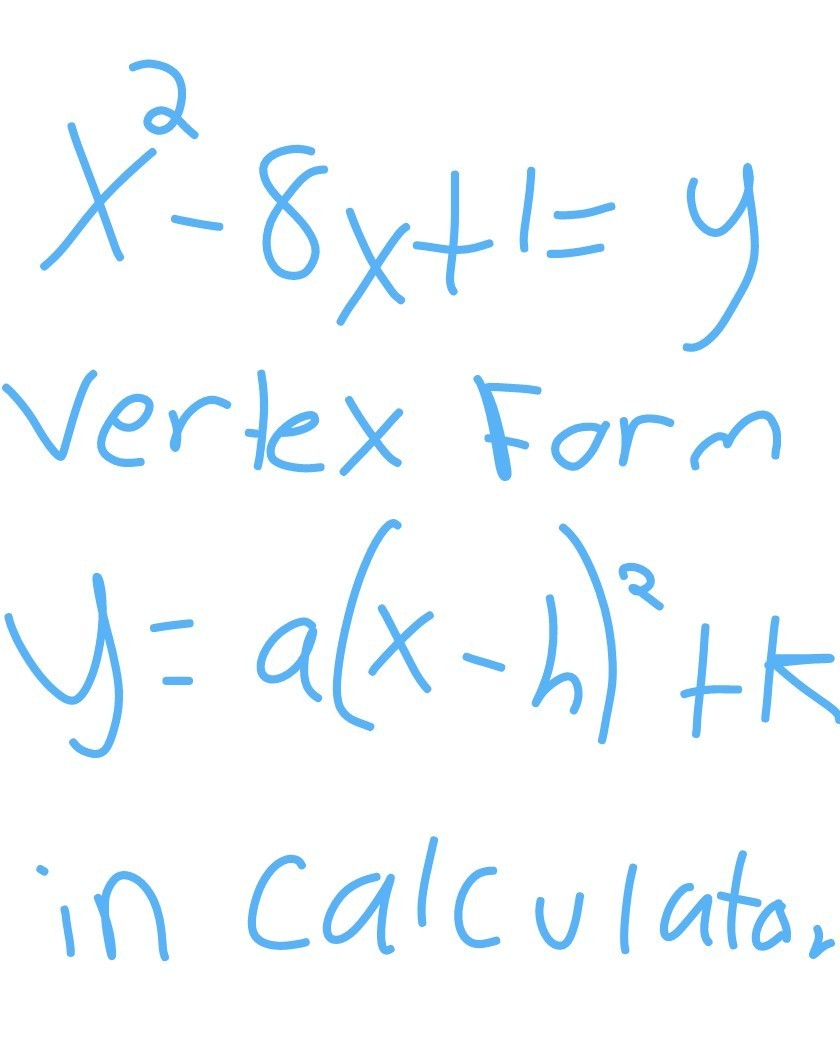 x² - 8x + 1 = y
Vertex Form
y = a(x - h)² + k
in Calculator